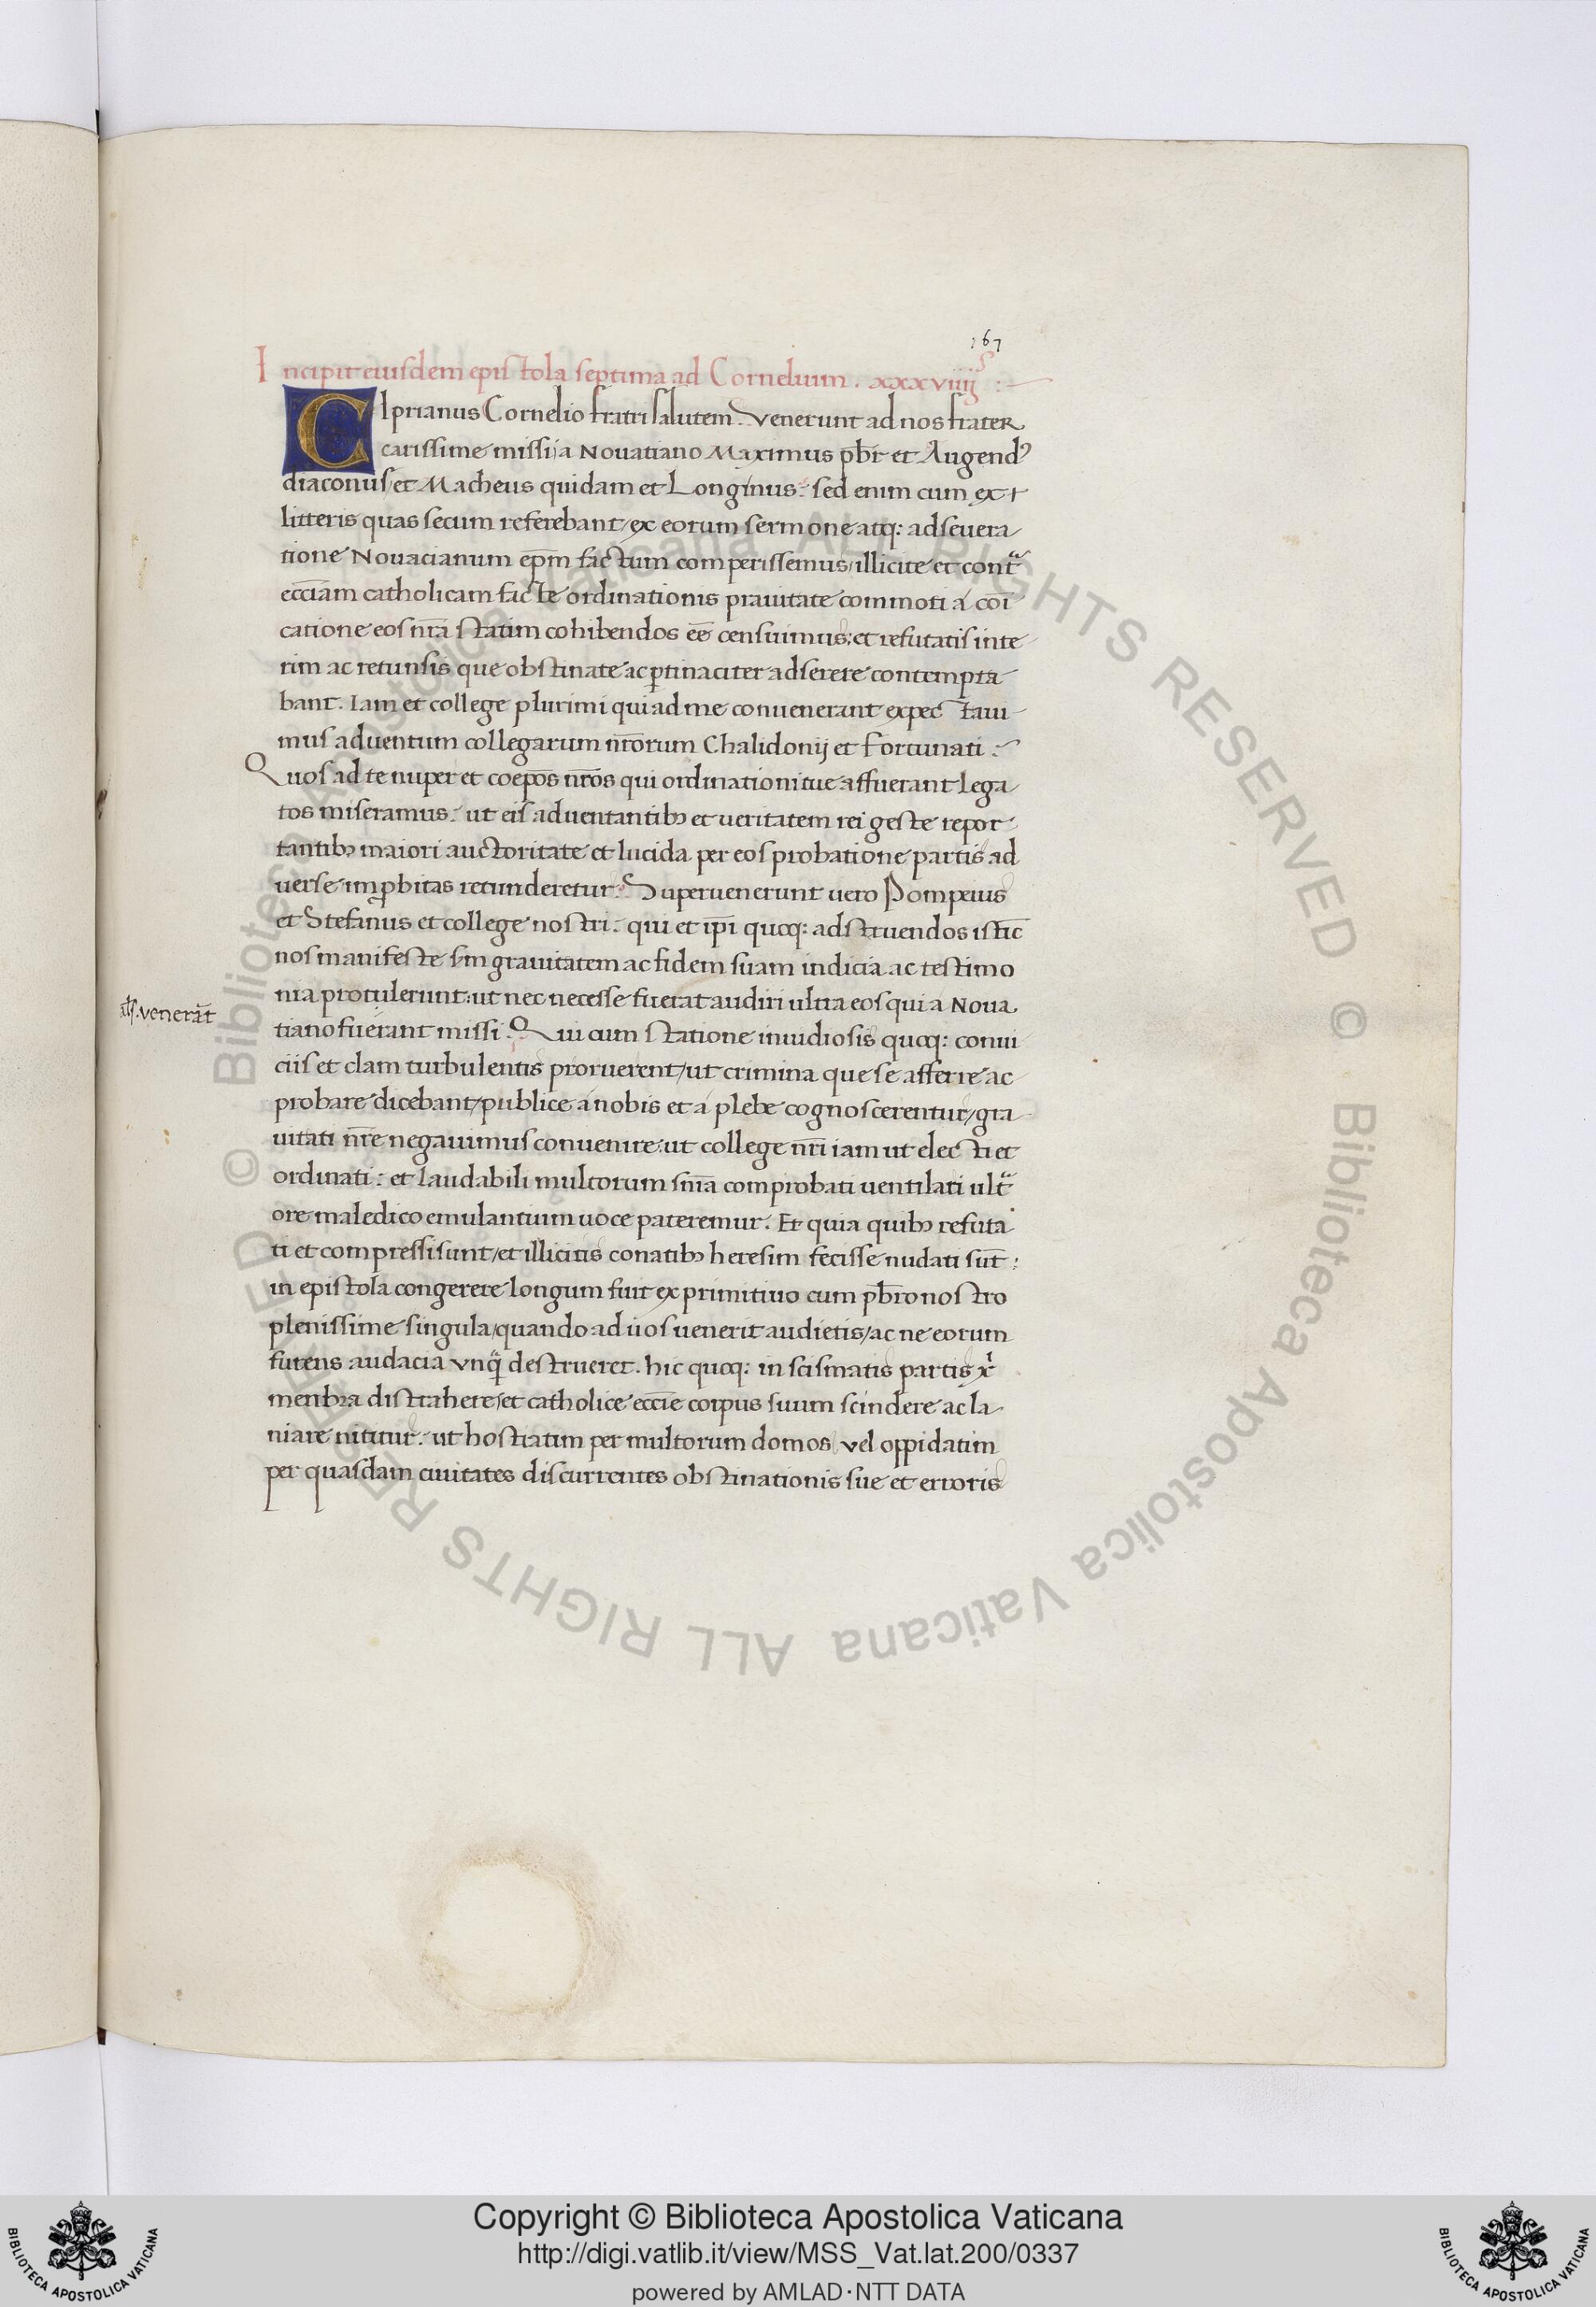 167
Incipit eiusdem epistola septima ad Cornelium. xxxviiij
CIprianus Cornelio fratri salutem. Venerunt ad nos frater
carissime missi a Novatiano Maximus pb̅r et Augendꝰ
diaconus et Macheus quidam et Longinus: sed enim cum ex
litteris quas secum referebant/ ex eorum sermone atq: adsevera
tione Novacianum ep̅m factum comperissemus/ illicite et contᵃ
eccl̅iam catholicam facte ordinationis pravitate commoti a co̅i
catione eos nr̅a statim cohibendos ee̅ censuimus: et refutatis inte
rim ac retunsis que obstinate ac ꝑtinaciter adserere contempta
bant. Iam et college plurimi qui ad me convenerant expec tavi
mus adventum collegarum nr̅orum Chalidonij et Fortunati:
Quos ad te nuper et coepo̅s nr̅os qui ordinationi tue affuerant lega
tos miseramus: ut eis adventantibꝫ et veritatem rei geste repor
tantibꝫ maiori auctoritate et lucida per eos probatione partis ad
verse imꝓbitas retunderetur. Supervenerunt vero Pompeius
et Stefanus et college nostri: qui et ip̅i quoq: adstruendos istic
nos manifeste s̅m gravitatem ac fidem suam indicia ac testimo
nia protulerunt: ut nec necesse fuerat audiri ultra eos qui a Nova
al's. venera̅t
tiano fuerant missi. Qui cum statione invidiosis quoq: convi
ciis et clam turbulentis proruerent/ ut crimina que se afferre ac
probare dicebant/ publice a nobis et a plebe cognoscerentur/ gra
vitati nr̅e negavimus convenire: ut college nr̅i iam ut elec ti et
ordinati: et laudabili multorum sn̅ia comprobati ventilati ultᵃ
ore maledico emulantium voce pateremur. Et quia quibꝫ refuta
ti et compressi sunt/ et illicitis conatibꝫ heresim fecisse nudati su̅t:
in epistola congerere longum fuit ex primitivo cum pb̅ro nostro
plenissime singula/ quando ad vos venerit audietis/ ac ne eorum
furens audacia unqᵃ destrueret. hic quoq: in scismatis partis xⁱ
menbra distrahere/ et catholice eccl̅ie corpus suum scindere ac la
niare nititur: ut hostiatim per multorum domos vel oppidatim
per quasdam civitates discurrentes obstinationis sue et erroris
© Biblioteca Apostolica Vaticana ALL RIGHTS RESERVED © Biblioteca Apostolica Vaticana ALL RIGHTS RESERVED
Copyright © Biblioteca Apostolica Vaticana
http://digi.vatlib.it/view/MSS_Vat.lat.200/0337
powered by AMLAD·NTT DATA
BIBLIOTECA APOSTOLICA VATICANA
BIBLIOTECA APOSTOLICA VATICANA